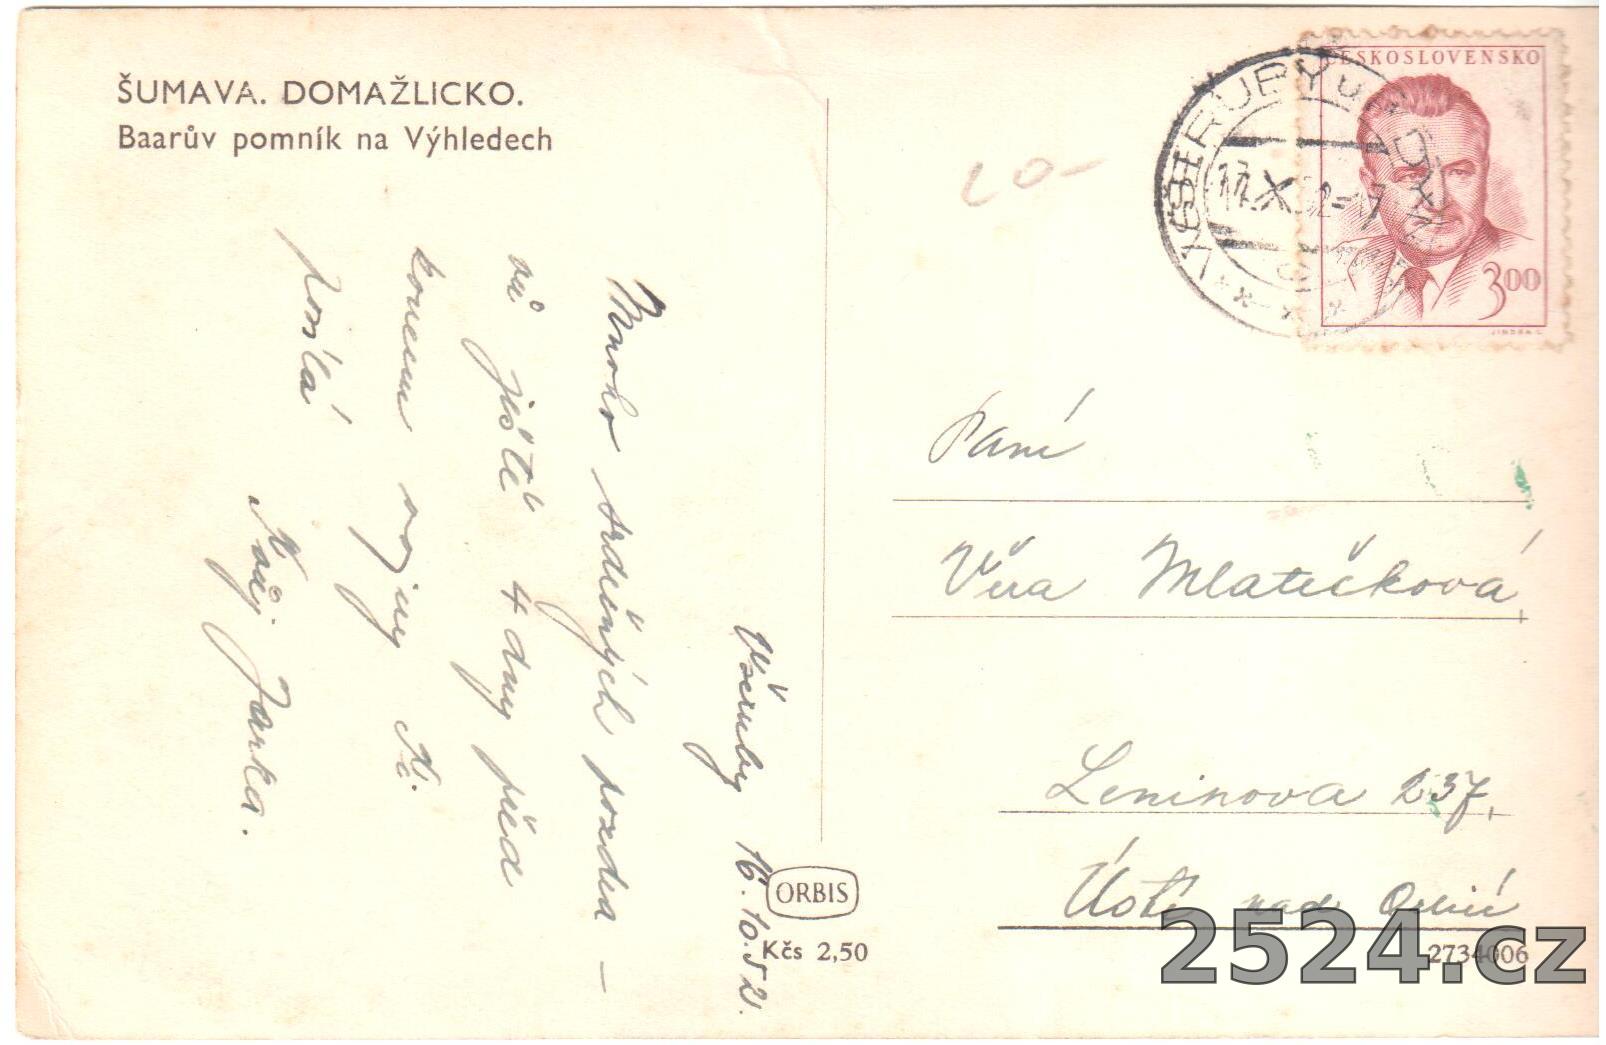 ŠUMAVA. DOMAŽLICKO.
Baarův pomník na Výhledech
Všeruby 16. 10. 52.
Mnoho srdečných pozdra –
vů ještě 4 dny před
koncem vojny Ti
posílá
Náš Jarka.
ORBIS
Kčs 2,50
ČESKOSLOVENSKO
3,00
VŠERUBY U
Paní
Věra Mlatečková,
Leninova 237,
Ústí nad Orlicí
2734006
2524.cz
20-